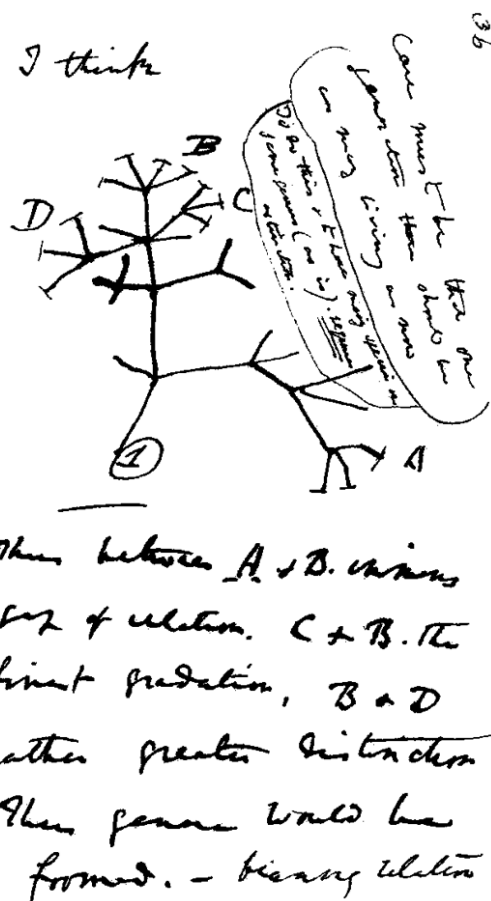 36
I think
Case must be that one
generation then should be
as many living as now
To do this & to have many species in
same genus (as is). requires
extinction.
B
C
D
A
1
Thus between A & B. immens
gap of relation. C & B. The
finest gradation, B & D
rather greater distinction
Thus genera would be
formed. – bearing relation